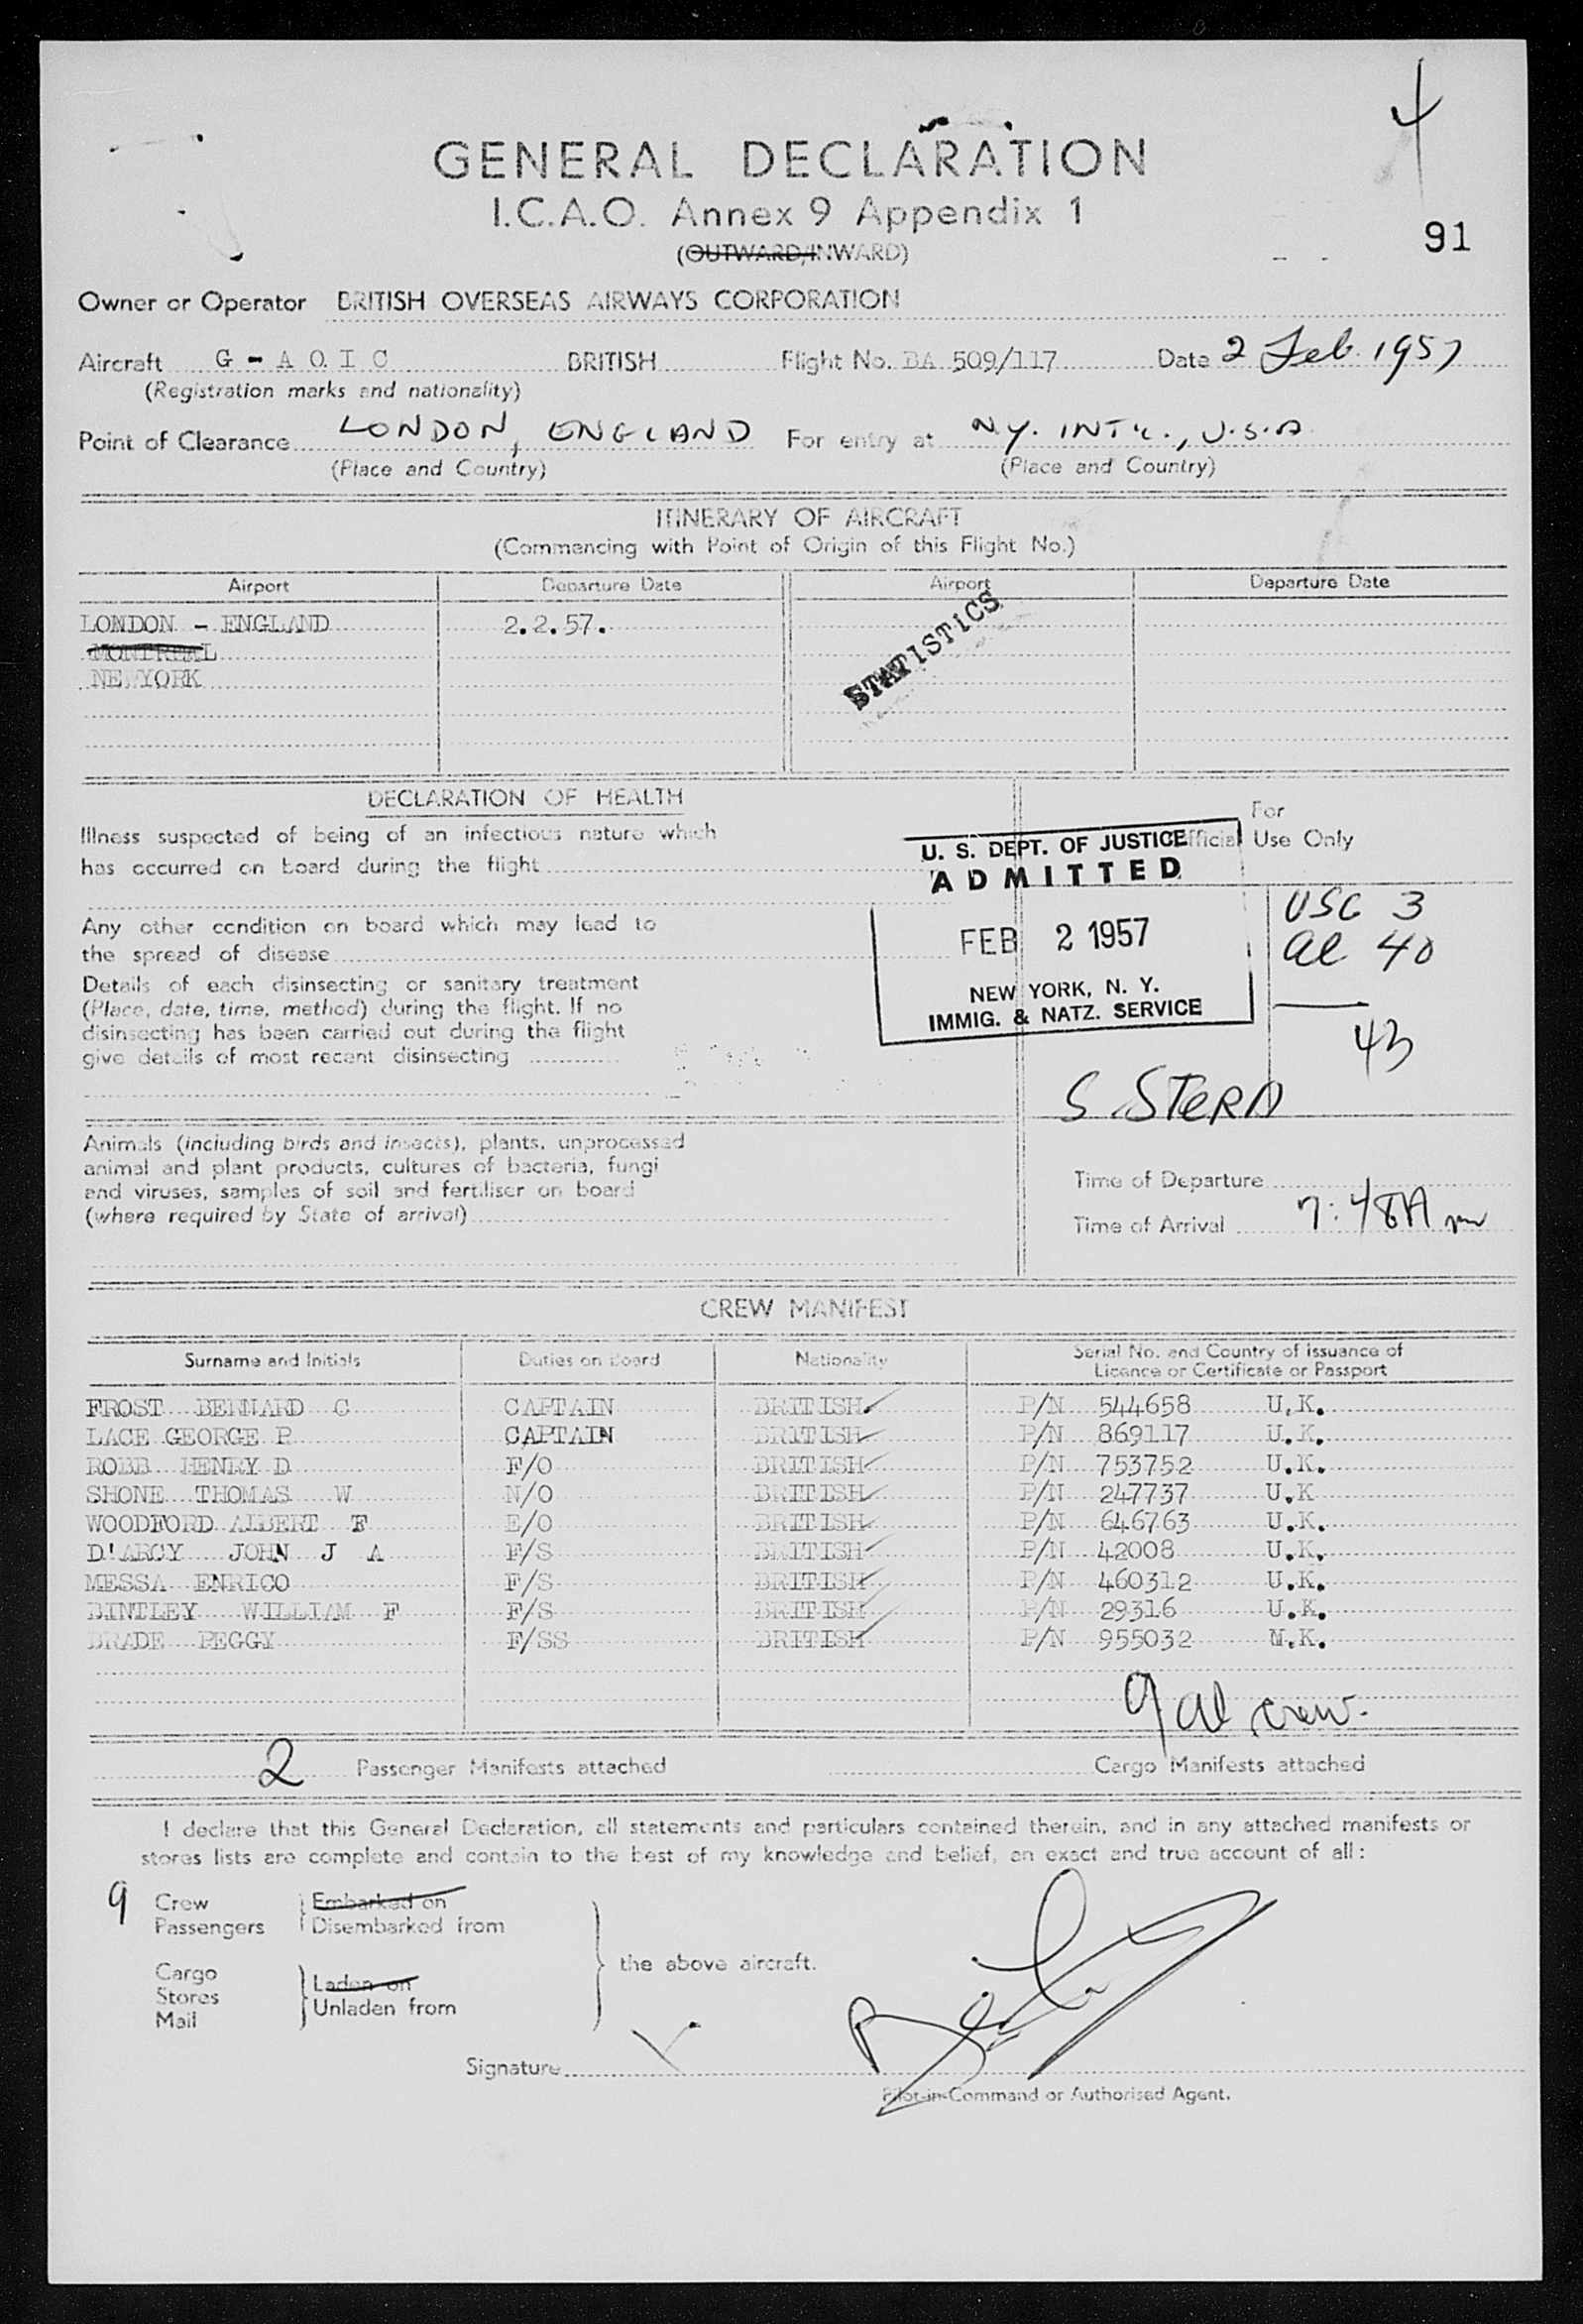 4
GENERAL DECLARATION
I.C.A.O. Annex 9 Appendix 1
91
(OUTWARD/INWARD)
Owner or Operator BRITISH OVERSEAS AIRWAYS CORPORATION
Aircraft G - A O I C BRITISH Flight No. BA 509/117 Date 2 Feb. 1957
(Registration marks and nationality)
Point of Clearance LONDON, ENGLAND For entry at N.Y. INT'L., U.S.A
(Place and Country) (Place and Country)
ITINERARY OF AIRCRAFT
(Commencing with Point of Origin of this Flight No.)
Airport Departure Date Airport Departure Date
LONDON - ENGLAND 2.2.57.
MONTREAL
NEW YORK
STATISTICS
DECLARATION OF HEALTH
For
Official Use Only
Illness suspected of being of an infectious nature which
has occurred on board during the flight
U. S. DEPT. OF JUSTICE
ADMITTED
FEB 2 1957
NEW YORK, N. Y.
IMMIG. & NATZ. SERVICE
USC 3
al 40
43
Any other condition on board which may lead to
the spread of disease
Details of each disinsecting or sanitary treatment
(Place, date, time, method) during the flight. If no
disinsecting has been carried out during the flight
give details of most recent disinsecting
S. STERN
Animals (including birds and insects), plants, unprocessed
animal and plant products, cultures of bacteria, fungi
and viruses, samples of soil and fertiliser on board
(where required by State of arrival)
Time of Departure
Time of Arrival 7:48A m
CREW MANIFEST
Surname and Initials Duties on Board Nationality Serial No. and Country of issuance of
Licence or Certificate or Passport
FROST BERNARD C CAPTAIN BRITISH P/N 544658 U.K.
LACE GEORGE P CAPTAIN BRITISH P/N 869117 U.K.
ROBB HENRY D F/O BRITISH P/N 753752 U.K.
SHONE THOMAS W N/O BRITISH P/N 247737 U.K
WOODFORD ALBERT F E/O BRITISH P/N 646763 U.K.
D'ARCY JOHN J A F/S BRITISH P/N 42008 U.K.
MESSA ENRICO F/S BRITISH P/N 460312 U.K.
BINTLEY WILLIAM F F/S BRITISH P/N 29316 U.K.
BRADE PEGGY F/SS BRITISH P/N 955032 U.K.
9 al crew.
2 Passenger Manifests attached Cargo Manifests attached
I declare that this General Declaration, all statements and particulars contained therein, and in any attached manifests or
stores lists are complete and contain to the best of my knowledge and belief, an exact and true account of all:
9 Crew Embarked on
Passengers Disembarked from
the above aircraft.
Cargo Laden on
Stores
Unladen from
Mail
Signature
Pilot-in-Command or Authorised Agent.